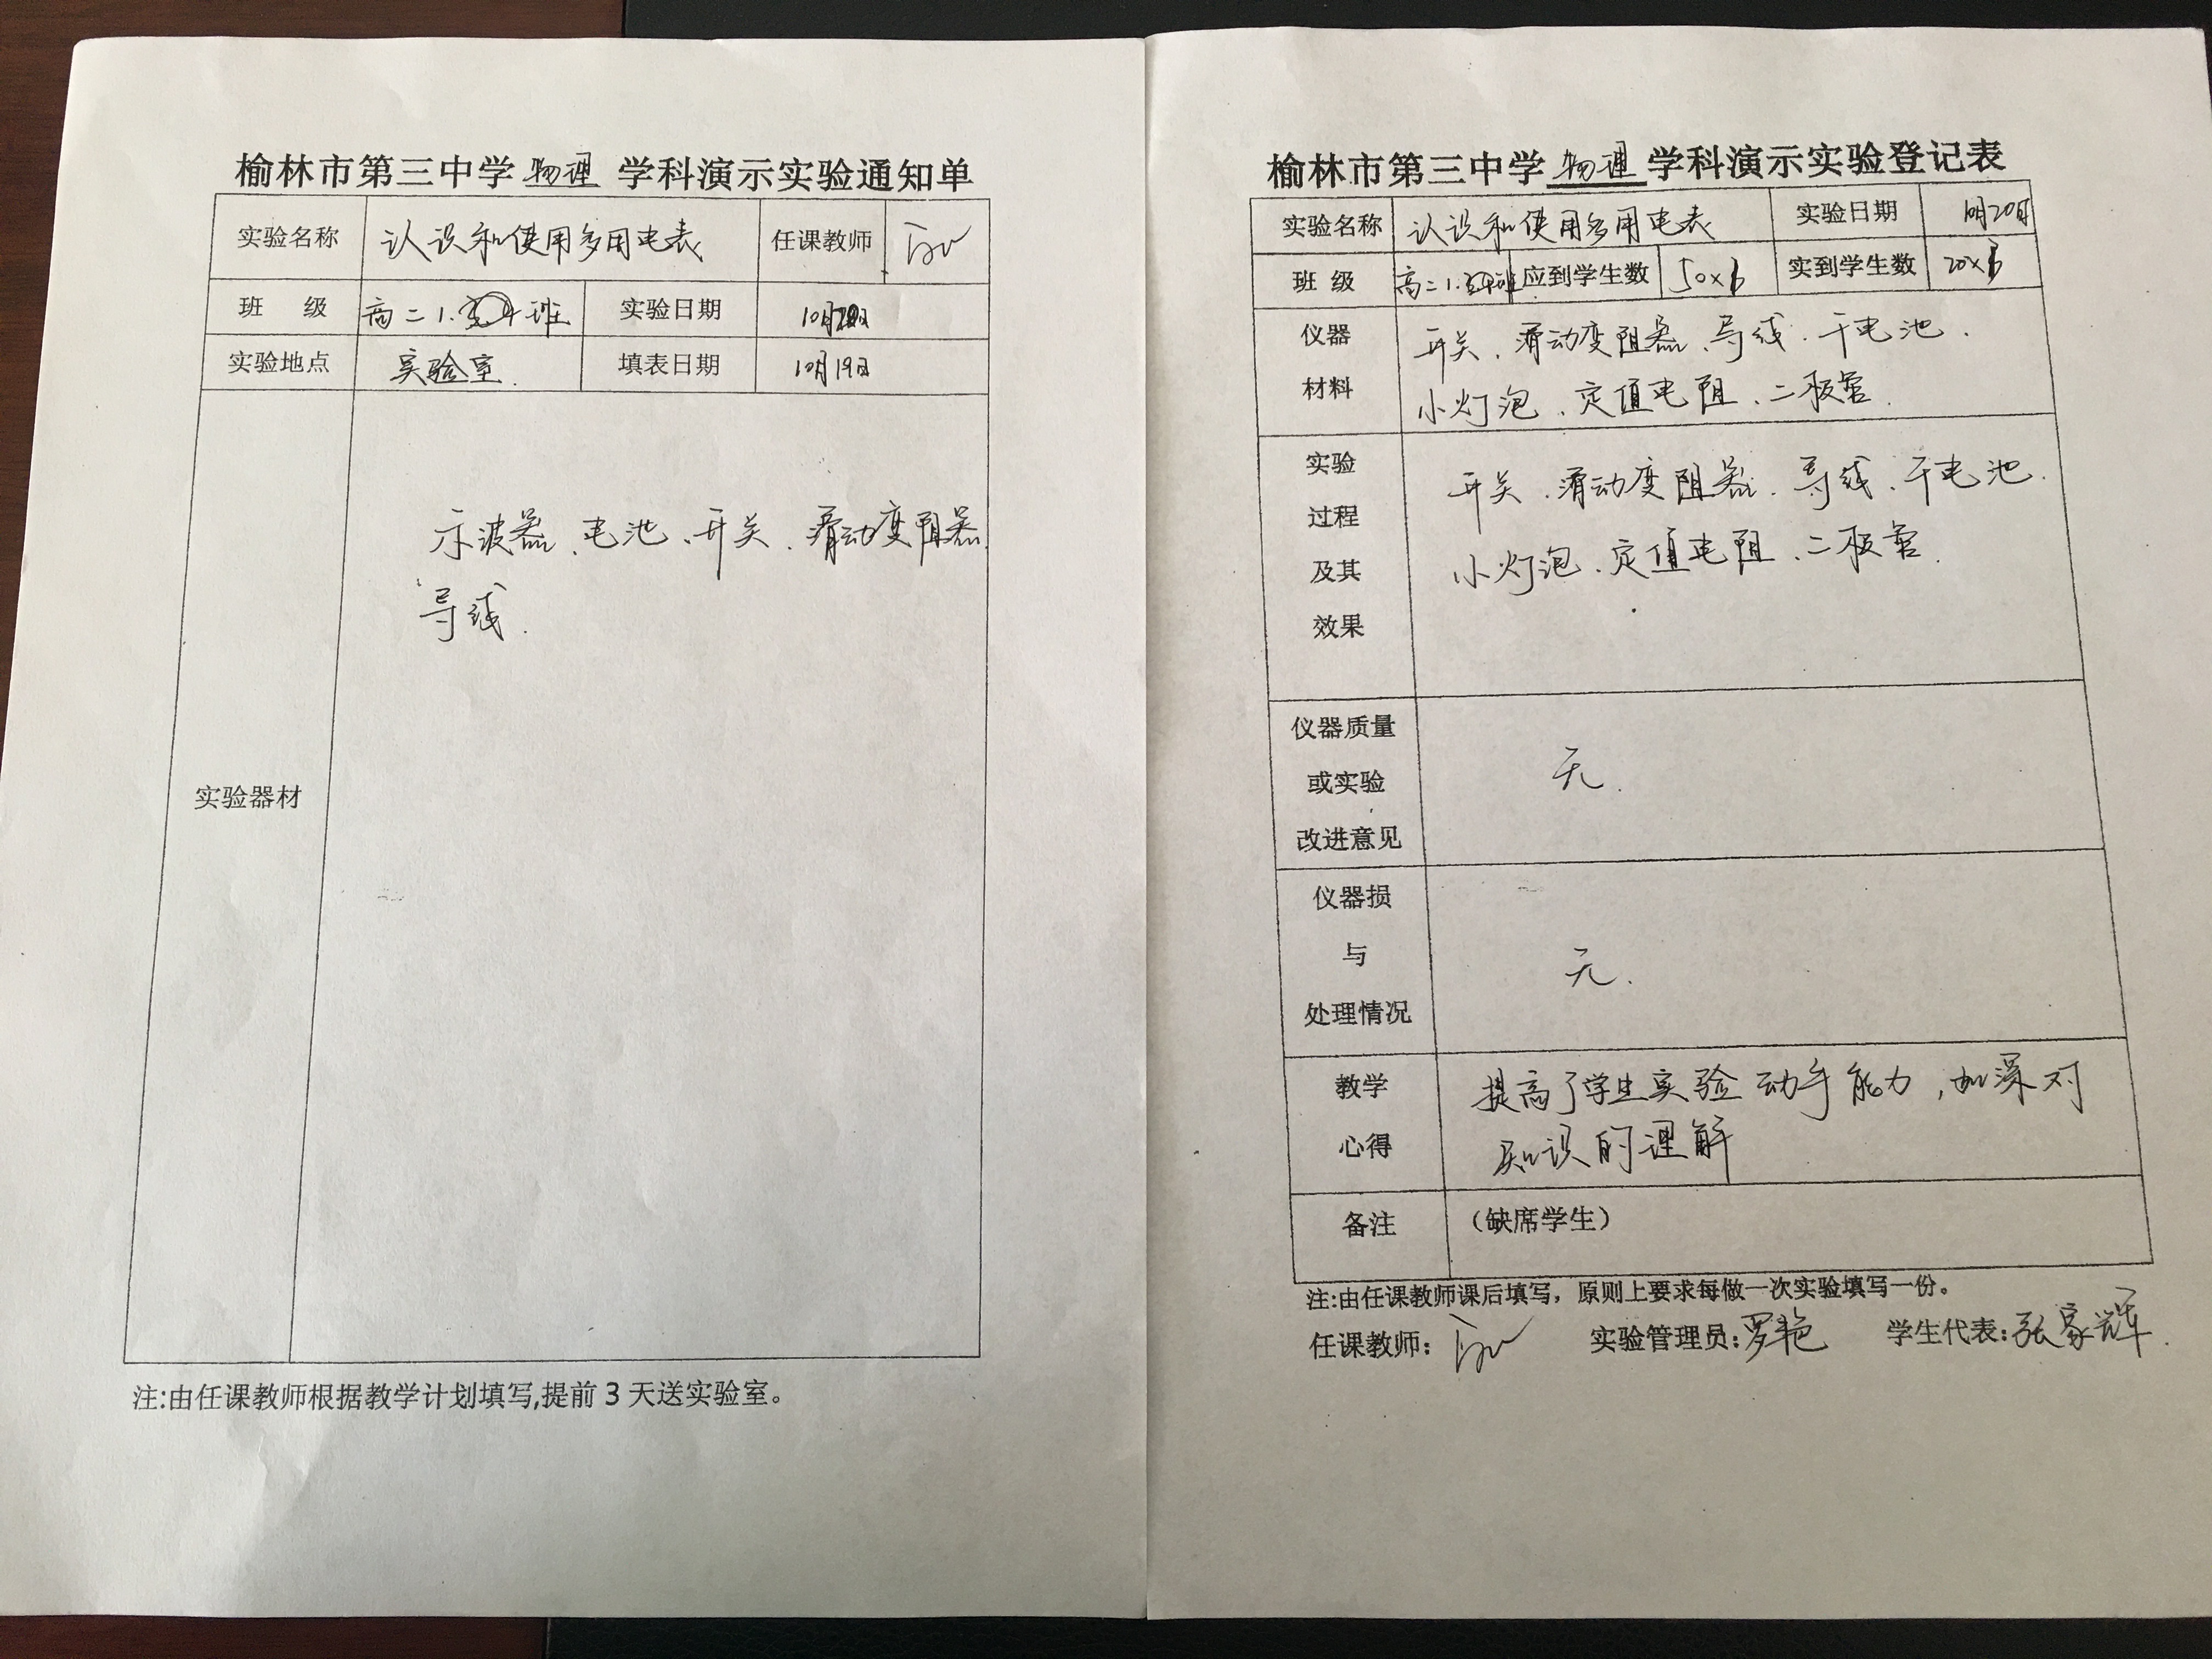 榆林市第三中学 物理 学科演示实验通知单
实验名称 认识和使用多用电表 任课教师
班 级 高二1. 班 实验日期 10月20日
实验地点 实验室. 填表日期 10月19日
实验器材
示波器、电池、开关、滑动变阻器
导线.
注:由任课教师根据教学计划填写,提前3天送实验室。
榆林市第三中学 物理 学科演示实验登记表
实验名称 认识和使用多用电表 实验日期 10月20日
班 级 高二1. 班 应到学生数 50×6 实到学生数
仪器
材料
开关、滑动变阻器、导线、干电池、
小灯泡、定值电阻、二极管.
实验
过程
及其
效果
开关、滑动变阻器、导线、干电池.
小灯泡、定值电阻、二极管.
仪器质量
或实验
改进意见
无.
仪器损
与
处理情况
无.
教学
心得
提高了学生实验动手能力,加深对
知识的理解
备注 （缺席学生）
注:由任课教师课后填写，原则上要求每做一次实验填写一份。
任课教师: 实验管理员:罗艳 学生代表:张家辉.